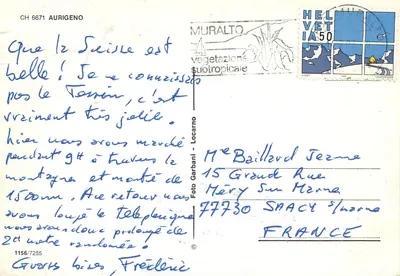 CH 6671 AURIGENO
Que la Suisse est
belle ! Je ne connaissais
pas le Tessin, c'est
vraiment très jolie.
Hier nous avons marché
pendant 9H à travers la
montagne et monté de
1500m. Au retour nous
avons loupé le téléphérique
nous avons donc prolongé de
2H notre randonnée.
Frédéric
1156/7255
Foto Garbani - Locarno
MURALTO
vegetazione
subtropicale
HELVETIA 50
Me Baillard Jeanne
15 Grande Rue
Méry Sur Marne
77730 SAACY s/marne
FRANCE